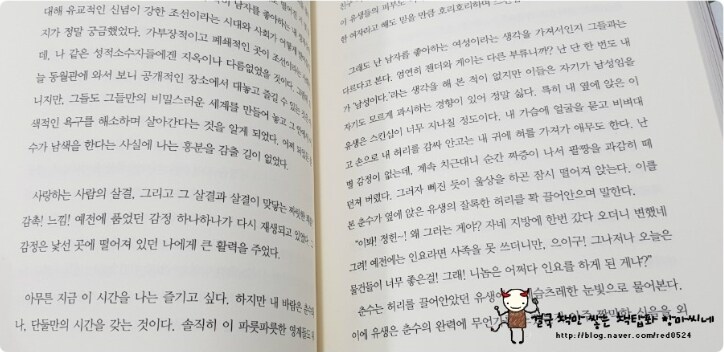 대해 유교적인 신념이 강한 조선이라는 시대와 사회가
지가 정말 궁금했었다. 가부장적이고 폐쇄적인 곳이 조선이라
데, 나 같은 성적소수자들에겐 지옥이나 다름없었을 것이다.
늘 동월관에 와서 보니 공개적인 장소에서 대놓고 즐길 수 있는
니지만, 그들도 그들만의 비밀스러운 세계를 만들어 놓고 그
색적인 욕구를 해소하며 살아간다는 것을 알게 되었다.
수가 남색을 한다는 사실에 나는 흥분을 감출 길이 없었다.
사랑하는 사람의 살결, 그리고 그 살결과 살결이 맞닿는 짜릿한
감촉! 느낌! 예전에 품었던 감정 하나하나가 다시 재생되고 있었다. 그
감정은 낯선 곳에 떨어져 있던 나에게 큰 활력을 주었다.
아무튼 지금 이 시간을 나는 즐기고 싶다. 하지만 내 바람은 춘수
나, 단둘만의 시간을 갖는 것이다. 솔직히 이 파릇파릇한 영계들도
한 여자라고 해도 믿을 만큼 호리호리하며
그래도 난 남자를 좋아하는 여성이라는 생각을 가져서인지 그들과는
다르다고 본다. 엄연히 젠더와 게이는 다른 부류니까? 난 단 한 번도 내
가 남성이다.'라는 생각을 해 본 적이 없지만 이들은 자기가 남성임을
자기도 모르게 과시하는 경향이 있어 정말 싫다. 특히 내 옆에 앉은 이
유생은 스킨십이 너무 지나칠 정도이다. 내 가슴에 얼굴을 묻고 비벼대
고 손으로 내 허리를 감싸 안고는 내 귀에 혀를 가져가 애무도 한다. 난
별 감정이 없는데, 계속 치근대니 순간 짜증이 나서 팔짱을 과감히 떼
던져 버렸다. 그러자 삐진 듯이 울상을 하곤 잠시 떨어져 앉는다. 이를
본 춘수가 옆에 앉은 유생의 잘록한 허리를 확 끌어안으며 말한다.
"이봐! 정헌~! 왜 그러는 게야? 자네 지방에 한번 갔다 오더니 변했네
그려! 예전에는 인요라면 사족을 못 쓰더니만, 으이구! 그나저나 오늘은
물건들이 너무 좋은걸! 그래! 니놈은 어쩌다 인요를 하게 된 게냐?"
춘수는 허리를 끌어안았던 유생을 게슴츠레한 눈빛으로 물어본다.
이에 유생은 춘수의 완력에
결국 책만 쌓는 책탑파 항마씨네
http://blog.naver.com/red0524